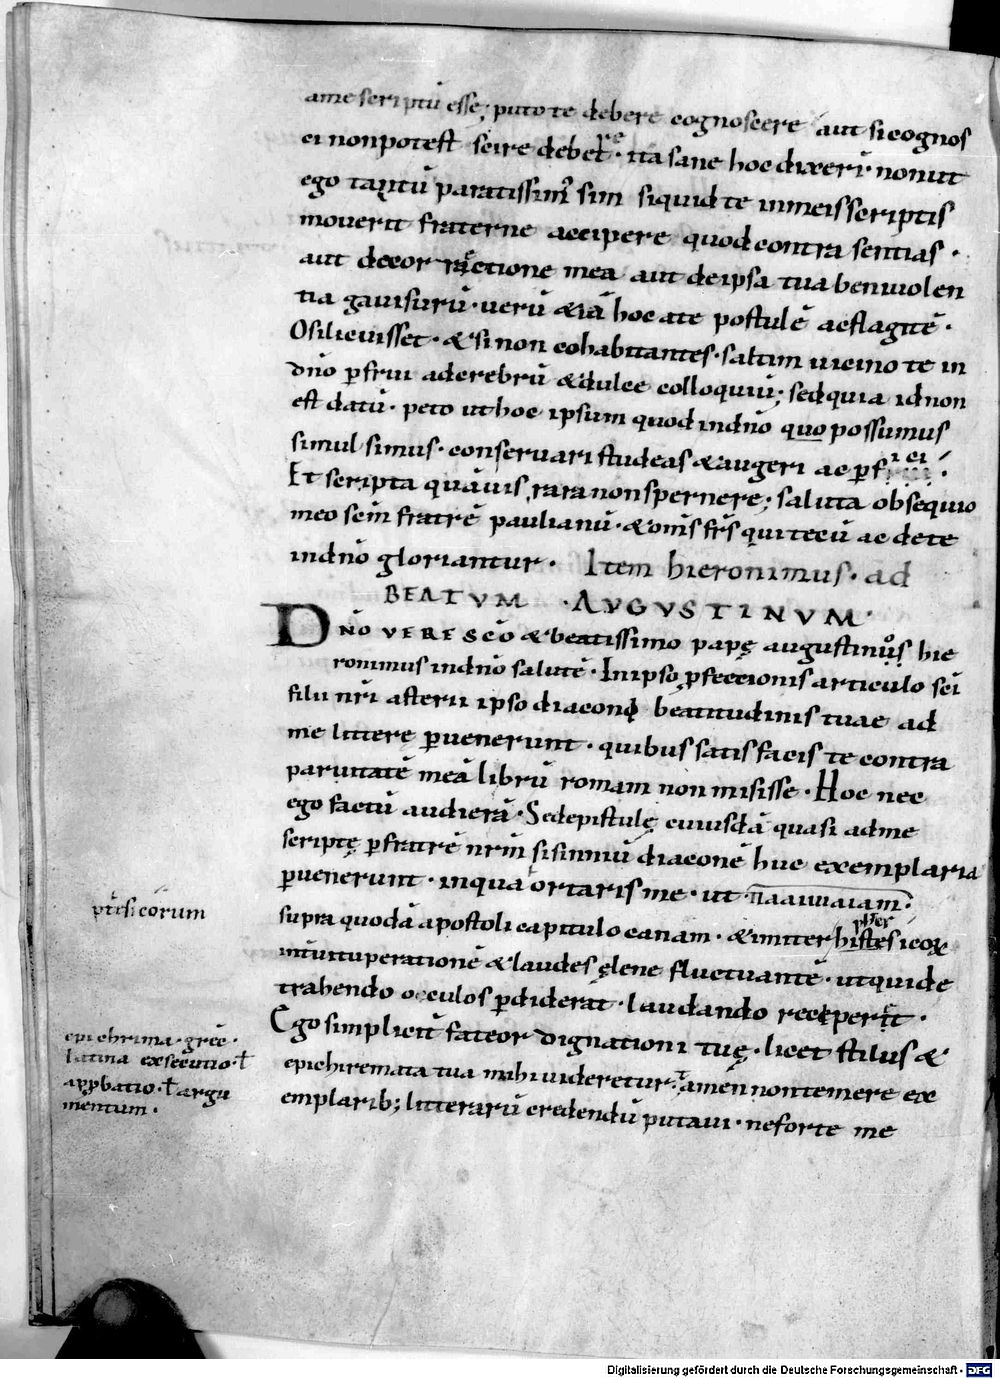 ame scriptū esse; puto te debere cognoscere aut si cognos
ci non potest scire debet re· ita sane hoc dixeri· non ut
ego tantū paratissim' sim siquid te in meis scriptis
moverit fraterne accipere quod contra sentias·
aut decorrectione mea aut de ipsa tua benivolen
tia gavisurū· verū & iā hoc ate postulē ac flagitē·
O si licuisset· & si non cohabitantes· saltim vicino te in
dn̄o ꝑfrui adcrebrū & dulce colloquiū; sed quia id non
est datū· peto ut hoc ipsum quod in dn̄o quo possumus
simul simus· conservari studeas & augeri ac ꝑf
Et scripta quāvis rara non spernere; saluta obsequio
meo scm̄ fratrē paulianū· & om̄s fr̄s qui tecū ac de te
in dn̄o gloriantur· Item hieronimus· ad
BEATUM · AUGUSTINUM·
DN̄O VERE SCŌ & beatissimo papę augustinus hie
ronimus in dn̄o salutē· In ipso ꝓfectionis articulo sc̄i
filii nr̄i asterii ipso diacono beatitudinis tuae ad
me litterę ꝑvenerunt· quibus satis facis te contra
parvitatē meā librū romam non misisse· Hoc nec
ego factū audierā· Sed epistulę cuiusdā quasi ad me
scriptę ꝑ fratrē nr̄m sisinniū diaconē huc exemplaria
ꝑvenerunt· in qua ortaris me· ut
supra quodā apostoli capitulo canam· & imiter histesicor
in vituperatione & laudes ęlene fluctuantē· ut qui de
trahendo occulos ꝑdiderat· laudando receperit·
Ego simpliciť fateor dignationi tuę· licet stilus &
epichiremata tua mihi videretur· tamen non temere ex
emplarib; litterarū credendū putavi· ne forte me
sicorum
epichrima· grece·
latina exsecutio· ł
appbatio· ł argu
mentum·
Digitalisierung gefördert durch die Deutsche Forschungsgemeinschaft - DFG